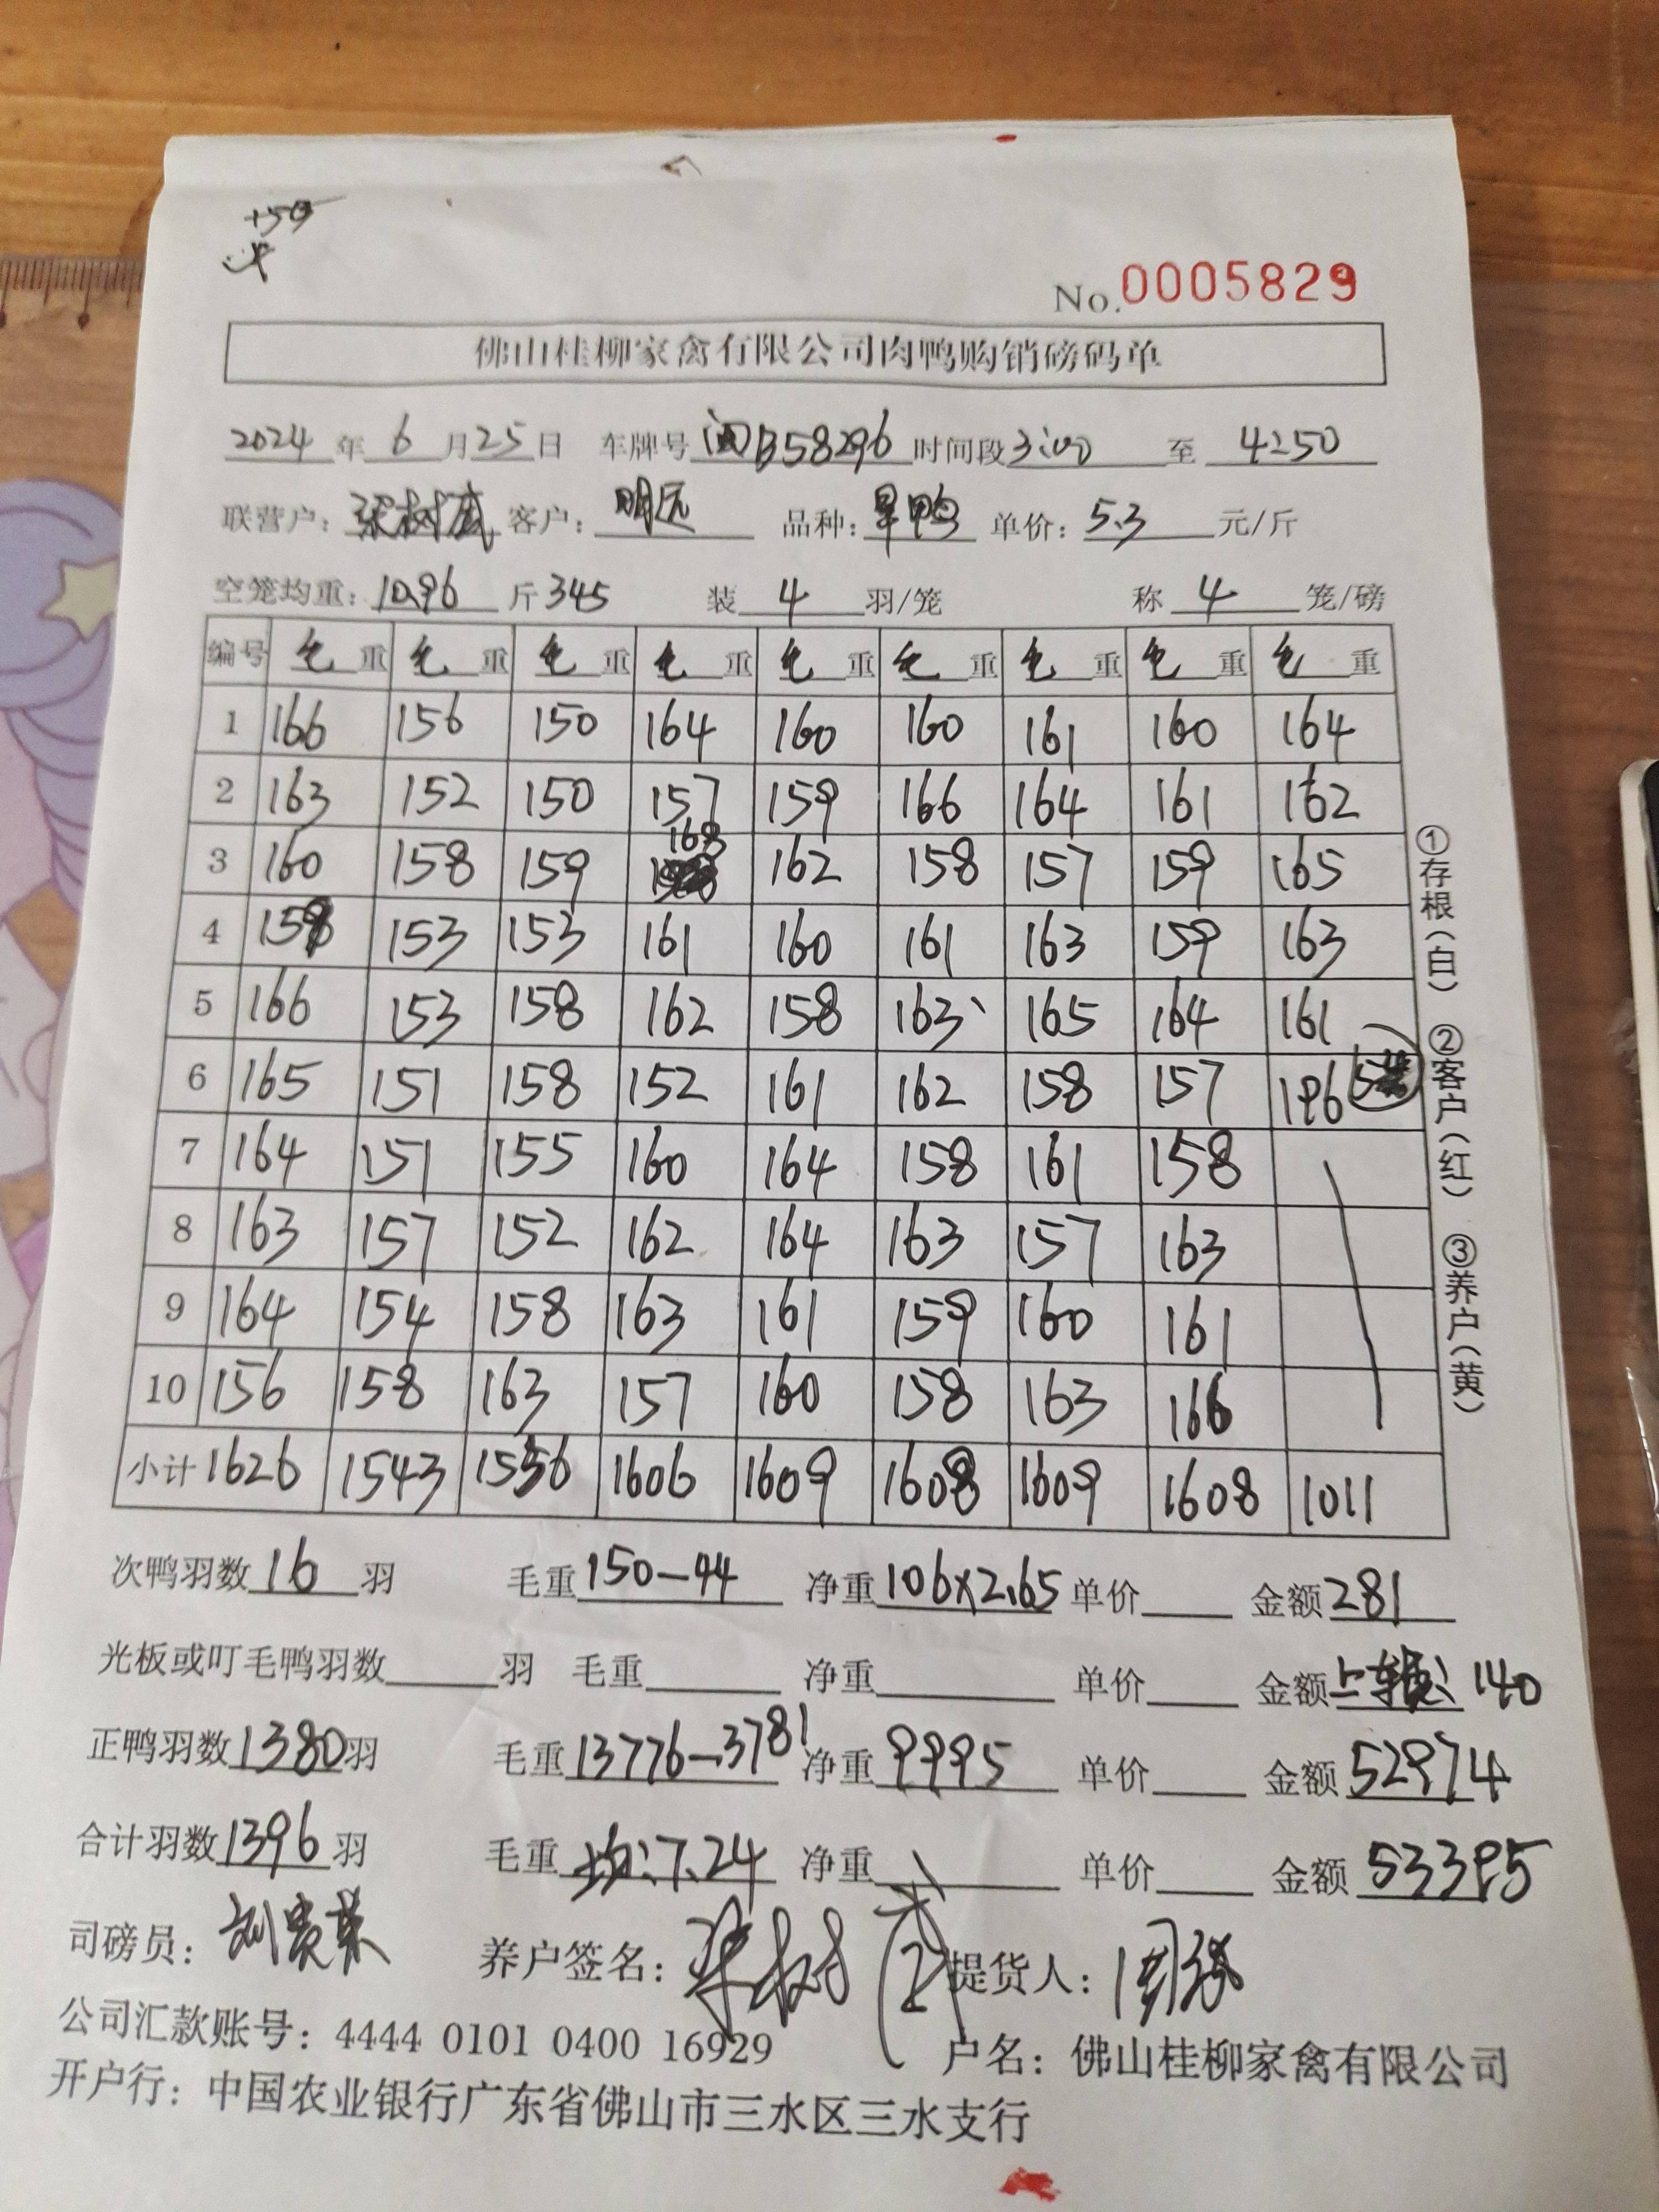 +50
No.0005829
佛山桂柳家禽有限公司肉鸭购销磅码单
2024年6月25日 车牌号闽B58296时间段3:00至4:50
联营户:梁树威 客户:明远 品种:旱鸭 单价:5.3元/斤
空笼均重:10.96斤345 装4羽/笼 称4笼/磅
编号 毛重 毛重 毛重 毛重 毛重 毛重 毛重 毛重 毛重
1 166 156 150 164 160 160 161 160 164
2 163 152 150 157 159 166 164 161 162
3 160 158 159 168 162 158 157 159 165
4 159 153 153 161 160 161 163 159 163
5 166 153 158 162 158 163 165 164 161
6 165 151 158 152 161 162 158 157 196
7 164 151 155 160 164 158 161 158
8 163 157 152 162 164 163 157 163
9 164 154 158 163 161 159 160 161
10 156 158 163 157 160 158 163 166
小计 1626 1543 1556 1606 1609 1608 1609 1608 1011
①存根(白) ②客户(红) ③养户(黄)
次鸭羽数16羽 毛重150-44 净重106×2.65 单价 金额281
光板或叮毛鸭羽数 羽 毛重 净重 单价 金额上车费:140
正鸭羽数1380羽 毛重13776-3781 净重9995 单价 金额52974
合计羽数1396羽 毛重 均:7.24 净重 单价 金额53395
司磅员:刘贵荣 养户签名:梁树威 提货人:
公司汇款账号:4444 0101 0400 16929 户名:佛山桂柳家禽有限公司
开户行:中国农业银行广东省佛山市三水区三水支行